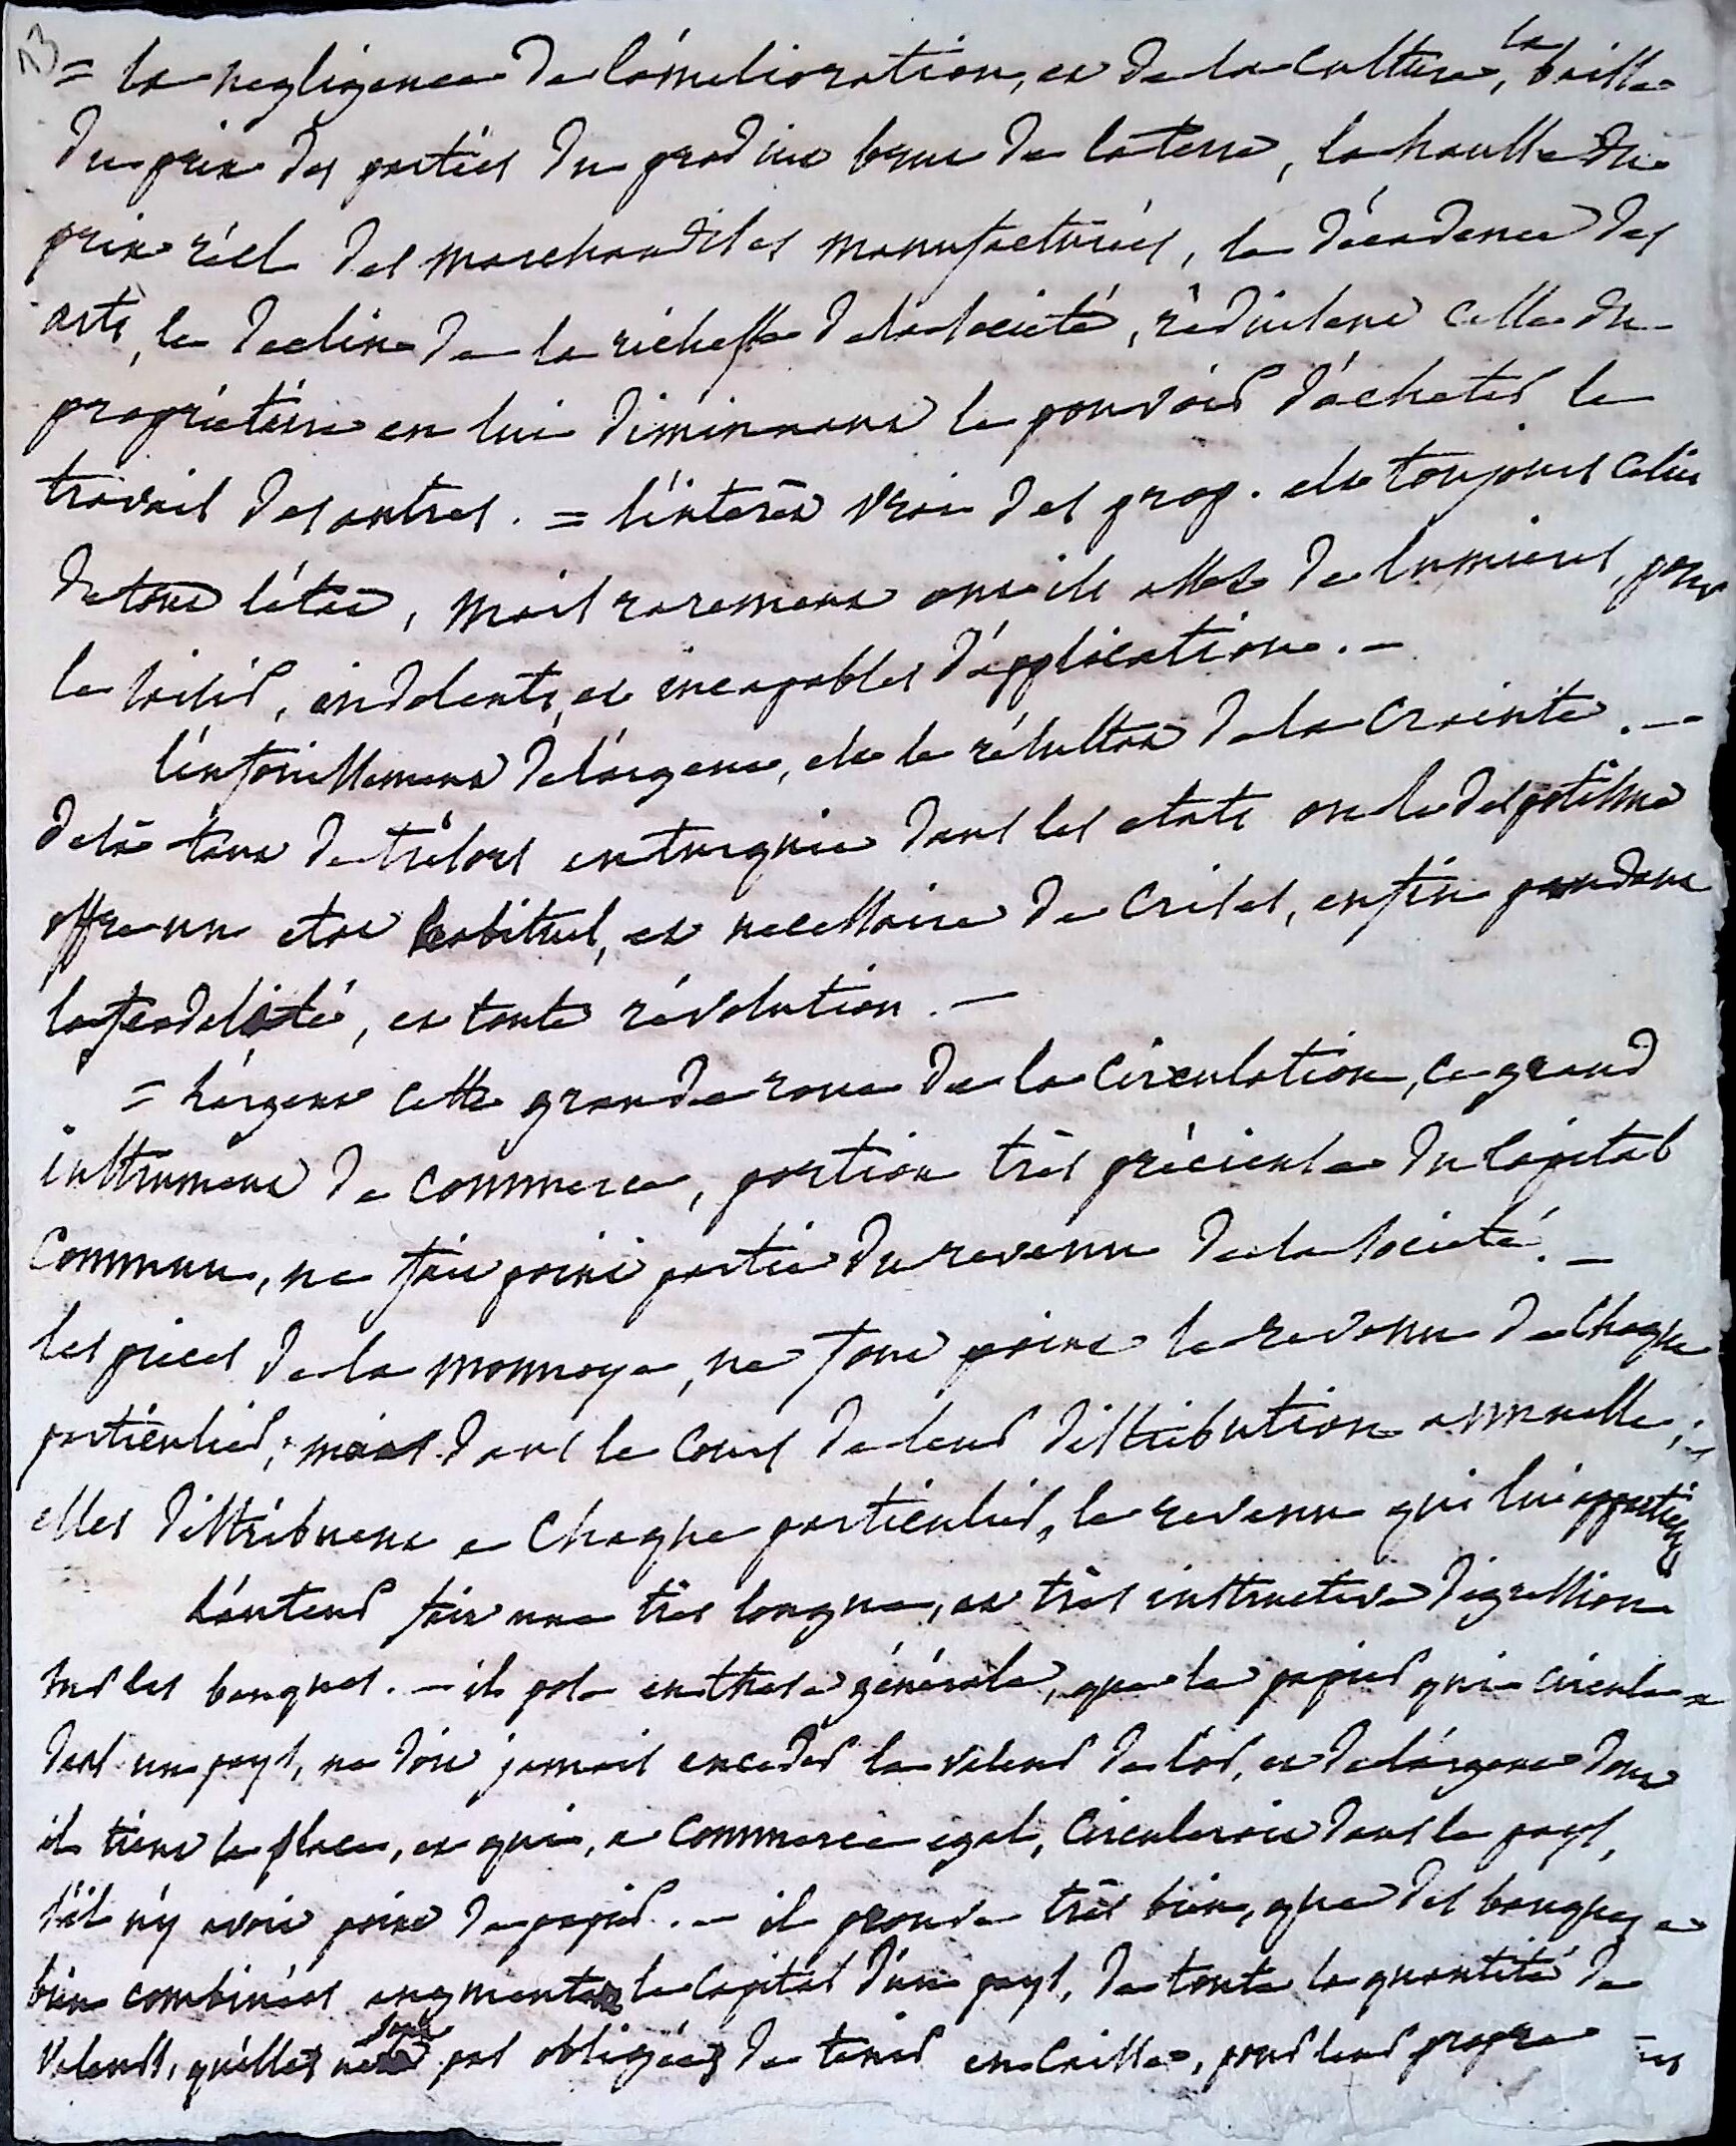 23
= la negligence de l'amelioration, et de la culture, la baisse
du prix des parties du produit brut de la terre, la hausse du
prix réel des marchandises manufacturées, la décadence des
arts, le declin de la richesse de la societé, réduisent celle du
propriétaire en lui diminuant le pouvoir d'acheter le
travail des autres. = l'interêt vrai des prop. est toujours celui
de tout l'état, mais rarement ont ils assez de lumieres, pour
le saisir, indolents, et incapables d'application. —
l'enfouissement de l'argent, est le résultat de la crainte. —
delà tant de trésors en turquie dans les etats ou le despotisme
offre un etat habituel, et necessaire de crises, enfin pendant
la feodalité, et toute révolution. —
= l'argent cette grande roue de la circulation, ce grand
instrument de commerce, portion très précieuse du capital
commun, ne fait point partie du revenu de la societé. —
les pieces de la monnoye, ne font point le revenu de chaque
particulier; mais dans le cours de leur distribution annuelle;
elles distribuent a chaque particulier, le revenu qui lui appartient
L'auteur fait une très longue, et très instructive digression
sur les banques. — il pose en these générale, que le papier qui circule
dans un pays, ne doit jamais exceder la valeur de l'or, et de l'argent dont
il tient la place, et qui, a commerce egal, circuleroit dans le pays,
s'il n'y avoit point de papier. — il prouve très bien, que des banques
bien combinées augmentent le capital d'un pays, de toute la quantité de
valeurs, qu'elles ne sont pas obligées de tenir en caisse, pour leur propre